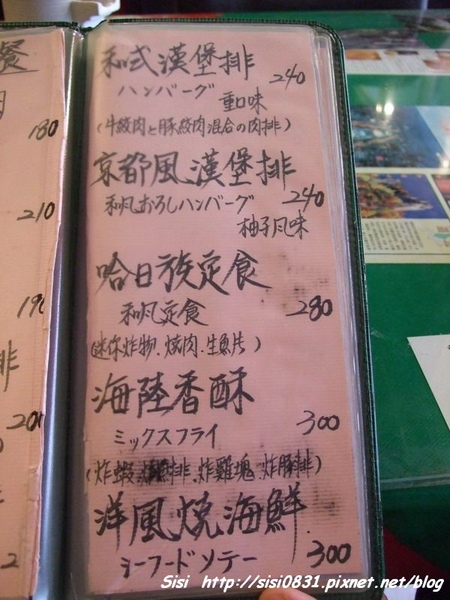 餐
肉
180
210
190
排
200
2
和式漢堡排 240
ハンバーグ 重口味
(牛絞肉と豚絞肉混合の肉排)
京都風漢堡排 240
和風おろしハンバーグ
柚子風味
哈日族定食 280
和風定食
(迷你炸物、燒肉、生魚片)
海陸香酥 300
ミックスフライ
(炸蝦 排、炸雞塊、炸豚排)
洋風燒海鮮
シーフードソテー 300
Sisi http://sisi0831.pixnet.net/blog